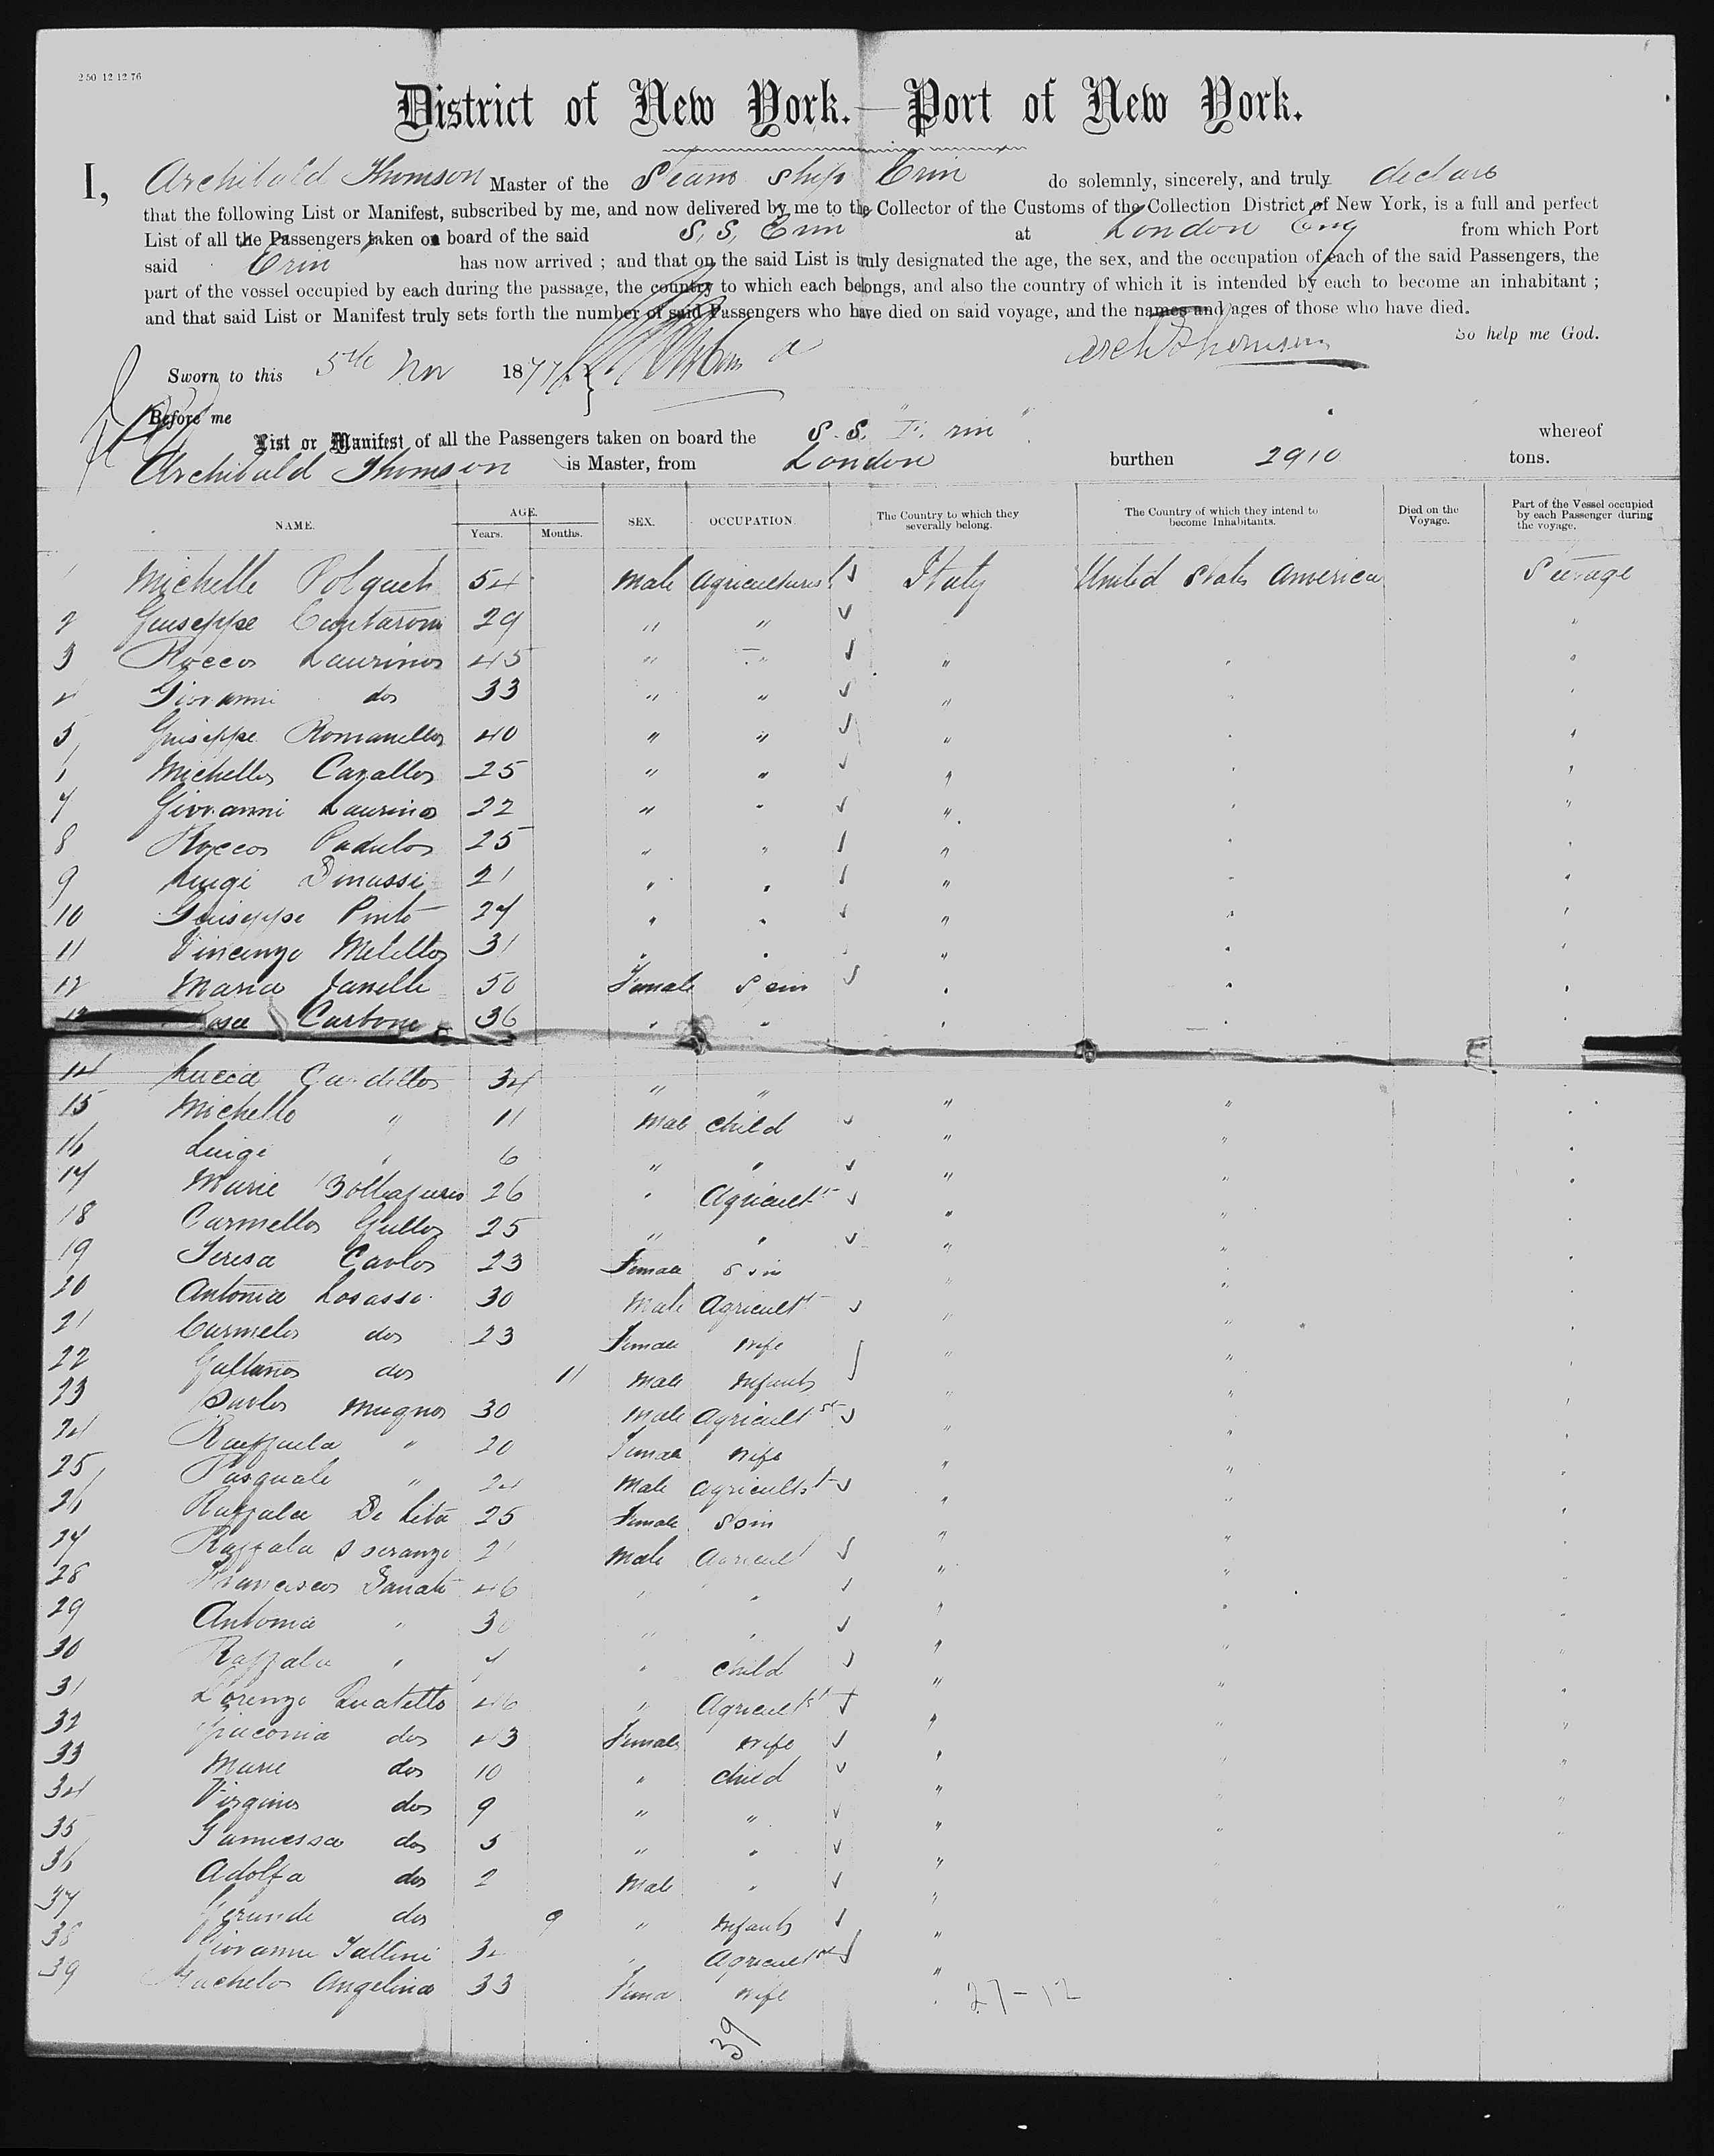 250 12 12 76
District of New York.—Port of New York.
I, Archibald Thomson Master of the Steam Ship Erin do solemnly, sincerely, and truly declare
that the following List or Manifest, subscribed by me, and now delivered by me to the Collector of the Customs of the Collection District of New York, is a full and perfect
List of all the Passengers taken on board of the said S, S, Erin at London Eng from which Port
said Erin has now arrived ; and that on the said List is truly designated the age, the sex, and the occupation of each of the said Passengers, the
part of the vessel occupied by each during the passage, the country to which each belongs, and also the country of which it is intended by each to become an inhabitant ;
and that said List or Manifest truly sets forth the number of said Passengers who have died on said voyage, and the names and ages of those who have died.
So help me God.
Arch Thomson
Sworn to this 5th Nov 1877
Before me
List or Manifest of all the Passengers taken on board the S. S. "Erin" whereof
Archibald Thomson is Master, from London burthen 2910 tons.
NAME. AGE. Years. Months. SEX. OCCUPATION. The Country to which they severally belong. The Country of which they intend to become Inhabitants. Died on the Voyage. Part of the Vessel occupied by each Passenger during the voyage.
1 Michelle 54 Male Agriculturist Italy United States America Steerage
2 Guiseppe 29 " " "
3 Rocco Laurino 45 " " " "
4 Giovanni do 33 " " " "
5 Guiseppe Romanello 40 " " " "
6 Michello Cavallo 25 " " " "
7 Giovanni Laurino 22 " " " "
8 Rocco Padulo 25 " " " "
9 Luigi 21 " " " "
10 Guiseppe Pinto 27 " " " "
11 Vincenzo Melillo 31 " " " "
12 Maria 50 Female Spin " "
13 Carbone 36 " " " "
14 Lucca 34 " " " "
15 Michello " 11 Male Child " "
16 Luigi " 6 " " " "
17 Marie 26 " Agricult " "
18 Carmello Gullo 25 " " " "
19 Teresa Carlo 23 Female Spin " "
20 Antonia Losasso 30 Male Agricult " "
21 Carmelo do 23 Female Wife " "
22 do 11 Male Infant " "
23 Mugno 30 Male Agricultst " "
24 Raffaela " 20 Female Wife " "
25 Pasquale " 24 Male Agricultst " "
26 Raffala De 25 Female Spin " "
27 Raffala 21 Male Agricult " "
28 Francisco Danato 46 " " " "
29 Antonia " 30 " " " "
30 Raffala " " Child " "
31 Lorenzo 46 " Agricultst " "
32 Giacoma do 43 Female Wife " "
33 Marie do 10 " Child " "
34 Virginio do 9 " " " "
35 do 5 " " " "
36 Adolfa do 2 Male " " "
37 do 9 " Infant " "
38 Giovanni 32 " Agricultst " "
39 Angelina 33 Fema Wife "
27-12
39